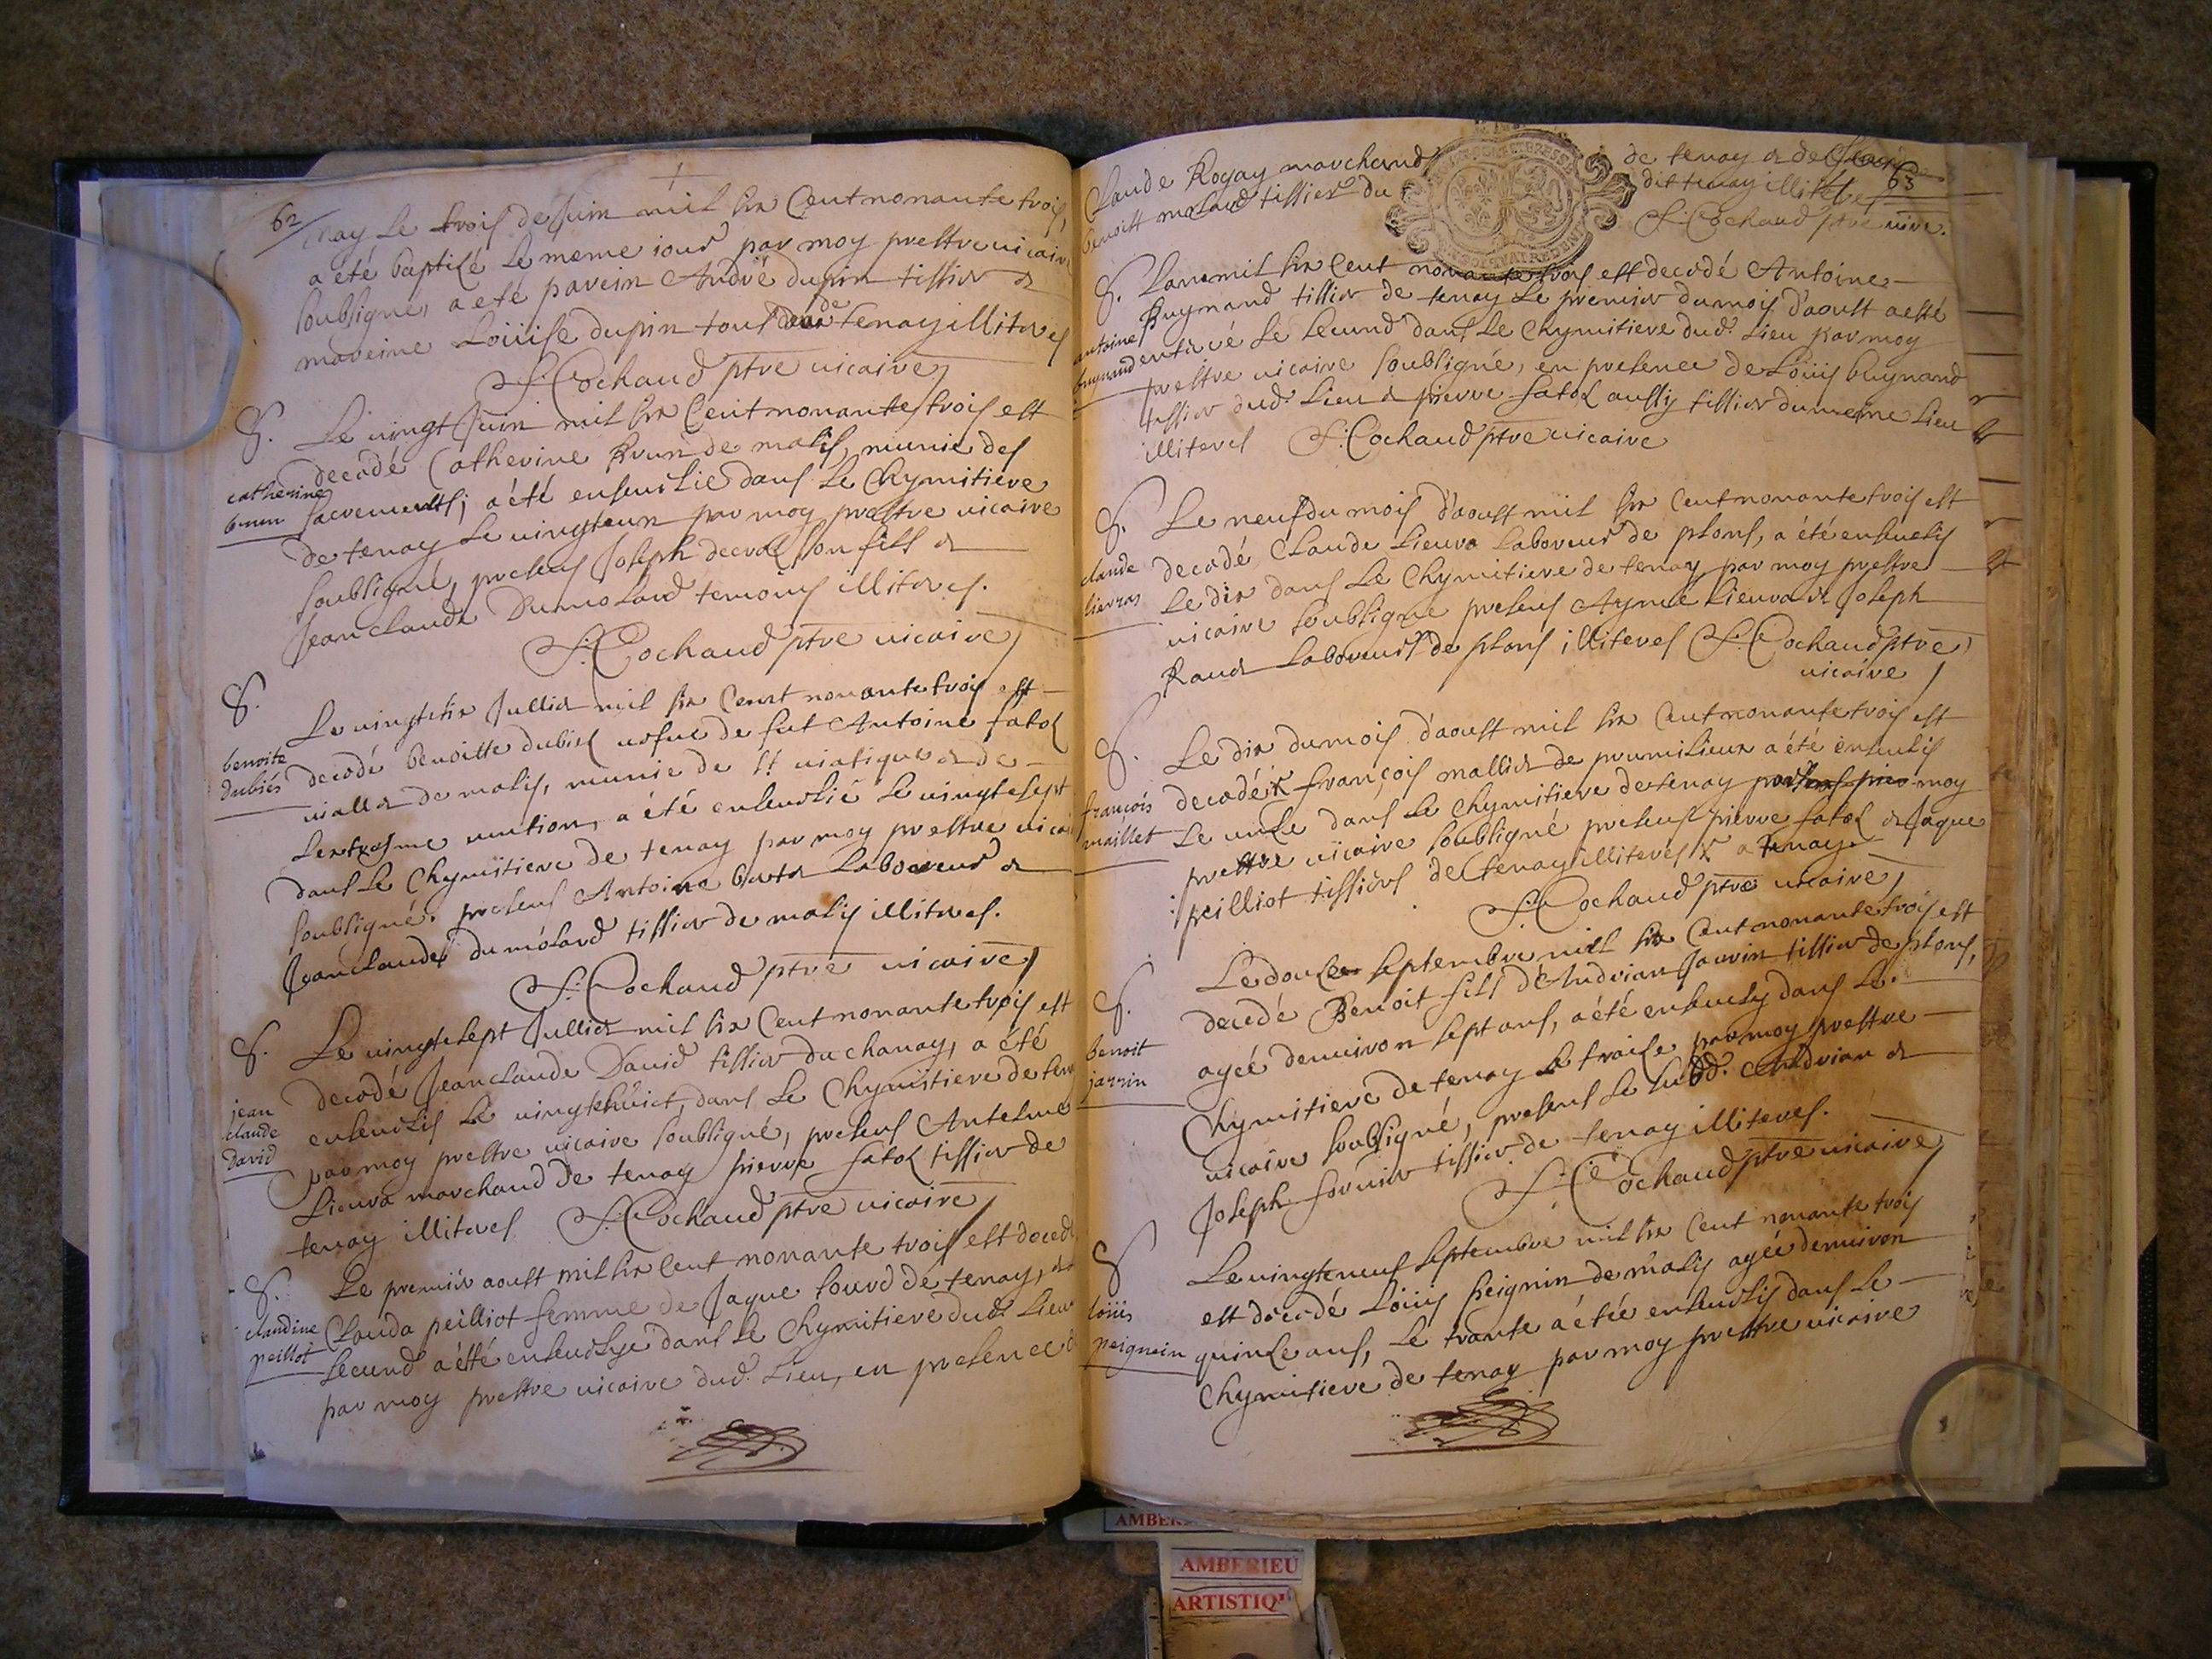 62
nay le trois de Juin mil six Cent nonante trois,
a eté baptisé le meme iour par moy prestre vicaire
soubsigné, a eté parein André dupin tissier &
mareine Loüise dupin tous deux de tenay illiteres
S. Cochaud ptre vicaire
S. Le vingt Juin mil six Cent nonante trois est
decedé Catherine Brun de malis, munie des
catherine
brun
sacrements; a été ensevelie dans le Chymitiere
de tenay le vingteun par moy prestre vicaire
soubsigné, presens Joseph son fils &
Jean claude Dumolard temoins illiteres.
S. Cochaud ptre vicaire
S.
Le vingt six Jullier mil six Cent nonante trois est
decedé benoitte dubiez vefue de fut Antoine fatol
benoite
dubiés
de malis, munie de St viatique & de
Lextreme unction, a été ensevelie le vingt sept
dans le Chymitiere de tenay par moy prestre vicai
soubsigné. presens Antoine Laboureur &
Jean claude dumolard tissier de malis illiteres.
S. Cochaud ptre vicaire
S. Le vingtesept Jullier mil six Cent nonante trois est
decedé Jean claude David tissier du chanay, a été
jean
claude
David
ensevelis le vingtehuict dans le Chymistiere de tena
par moy prestre vicaire soubsigné, presens Antelme
Lievra marchand de tenay pierre fatol tissier de
tenay illiteres S. Cochaud ptre vicaire
S. Le premier aoust mil six Cent nonante trois est decedé
Clauda peilliot femme de Jaque sourd de tenay, &
claudine
peillot
secund a été ensevelye dans le Chymitiere dud. Lieu
par moy prestre vicaire dud. Lieu, en presence
63
Claude Rogay marchand de tenay & de
benoitt molard tissier du dit tenay illiteres
S. Cochaud ptre vicre.
S. Lan mil six Cent nonante trois est decedé Antoine
Bugnand tissier de tenay le premier du mois d'aoust a esté
antoine
bugnand
enterré le secund dans le Chymitiere dud. Lieu par moy
prestre vicaire soubsigné, en presence de Loüis bugnand
tissier dud. Lieu & pierre fatol aussy tissier du meme lieu
illiteres S. Cochaud ptre vicaire
S. Le neuf du mois d'aoust mil six Cent nonante trois est
decedé Claude Lievra Laboureur de plons, a été ensevelis
claude
lievraz
Le dix dans le Chymitiere de tenay par moy prestre
vicaire soubsigné presens Aymé Lievra & Joseph
Ravet Laboureurs de plons illiteres S. Cochaud ptre
vicaire
S. Le dix du mois d'aoust mil six Cent nonante trois est
decedé françois malliet de prumilieux a été ensevelis
françois
maillet
Le unze dans le Chymitiere de tenay par moy
prettre vicaire soubsigné presens pierre fatol & Jaque
peilliot tissiers de tenay illiteres a tenay.
S. Cochaud ptre vicaire
S. Le douze septembre mil six Cent nonante trois est
decedé Benoit fils d'Andrian Jarrin tissier de plons,
benoit
jarrin
agée denuiron sept ans, a été ensevely dans le
Chymitiere de tenay le traise par moy prestre
vicaire soubsigné, presens le susd. Andrian &
Joseph fornier tissier de tenay illiteres.
S. Cochaud ptre vicaire
S Le vingteneuf septembre mil six Cent nonante trois
est decedé Loüis peignin de malis agée denuiron
loüis
peignin
quinze ans, Le trante a étée ensevelis dans le
Chymitiere de tenay par moy prestre vicaire
AMBERIEU
ARTISTIQU